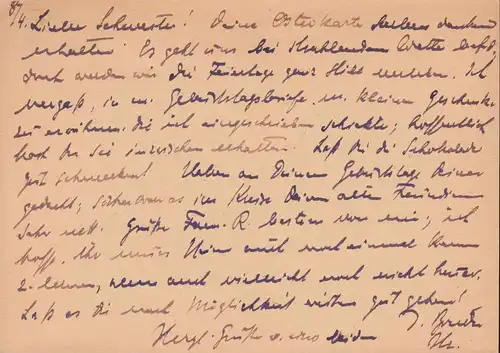 8/4. Liebe Schwester! Deine Osterkarte dankend
erhalten. Es geht uns bei strahlendem Wetter
doch werden wir die Feiertage ganz still Ich
vergaß, in m. Geburtstagsbriefe m. kleinen Geschenke
zu erwähnen, die ich eingeschrieben schickte; hoffentlich
hast Du sie inzwischen erhalten. Laß Dir die Schokolade
gut schmecken! Haben an Deinem Geburtstage Deiner
gedacht; war es im Kreise Deiner alten Freundinnen
sehr nett. Grüße Fam. R. bestens von mir; ich
hoffe, Ihr unser Heim auch noch einmal kennen
z. lernen, wenn auch vielleicht noch nicht heuer.
Laß es Dir nach Möglichkeit weiter gut gehen!
Herzl. Grüße v. uns beiden
D. Bruder